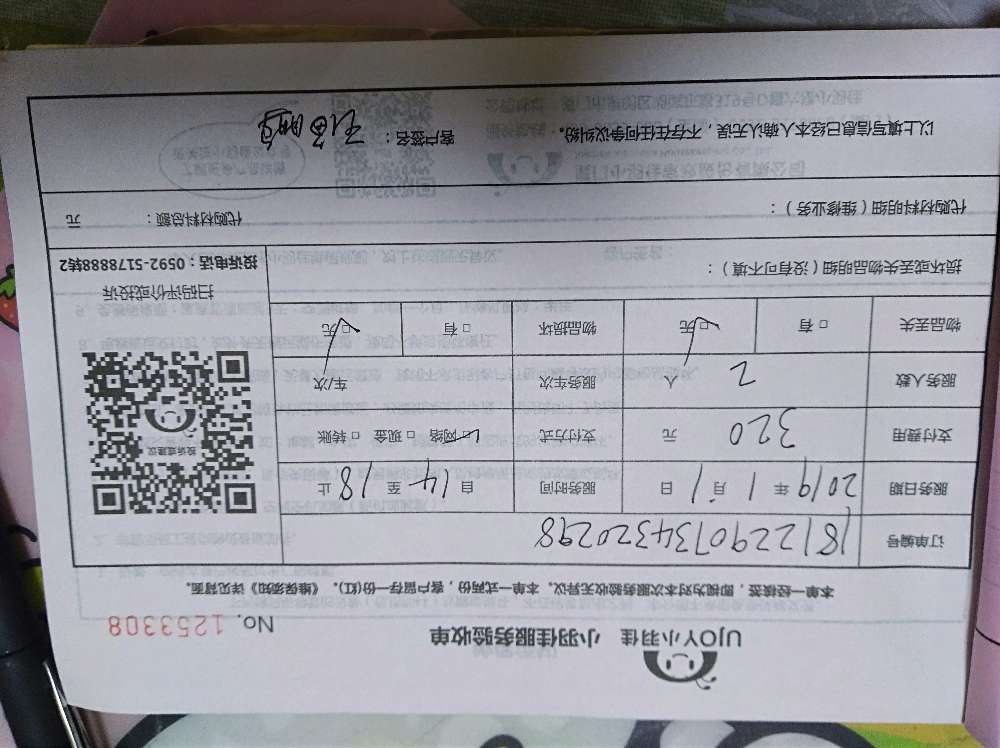 UJOY小羽佳 小羽佳服务验收单
No. 1253308
本单一经核签，即视为对本次服务验收无异议。本单一式两份，客户留存一份(红)，《维保须知》详见背面。
订单编号 181229073432029​8
服务日期 2019 年 1 月 1 日 服务时间 自 14 至 18 止
支付费用 320 元 支付方式 □网络 □现金 □转账
服务人数 2 人 服务车次 车/次
物品丢失 □有 □无 物品损坏 □有 □无
投诉或建议
扫码评价或投诉
投诉电话：0592-5178888转2
损坏或丢失物品明细（没有可不填）：
代购材料明细（维修业务）： 代购材料总额： 元
以上填写信息已经本人确认无误，不存在任何争议纠纷。 客户签名：